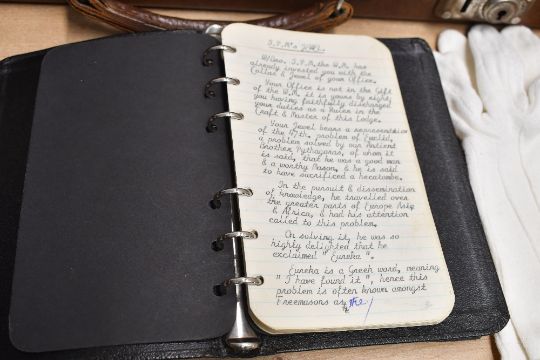 I.P.M's
W/Bro. I.P.M. the W.M. has
already invested you with the
Collar & Jewel of your Office.
Your Office is not in the Gift
of the W.M. it is yours by right,
you having faithfully discharged
your duties as a Ruler in the
Craft & Master of this Lodge.
Your Jewel bears a representation
of the 47th. problem of Euclid,
a problem solved by our Ancient
Brother Pythagoras, of whom it
is said, that he was a good man
& a worthy Mason, & he is said
to have sacrificed a hecatombe.
In the pursuit & dissemination
of knowledge, he travelled over
the greater parts of Europe Asia
& Africa, & had his attention
called to this problem.
On solving it, he was so
highly delighted that he
exclaimed "Eureka".
Eureka is a Greek word, meaning
"I have found it", hence this
problem is often known amongst
Freemasons as the